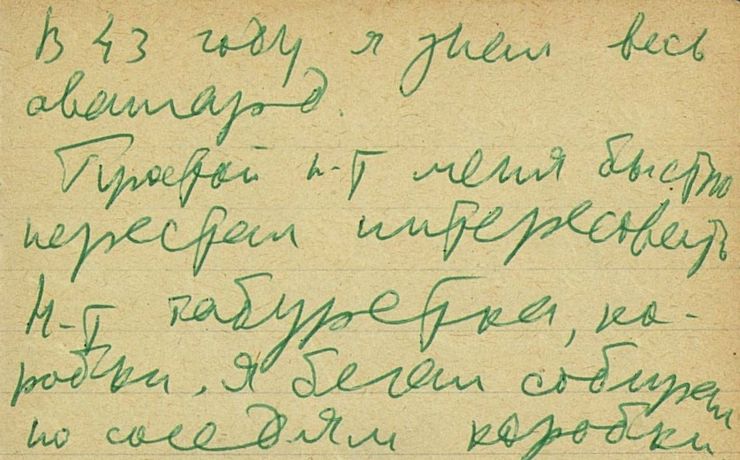 В 43 году я знал весь
авангард.
Простой н-т меня быстро
перестал интересовать
Н-Т табуретка, ко-
робки. Я бегал собирал
по соседям коробки